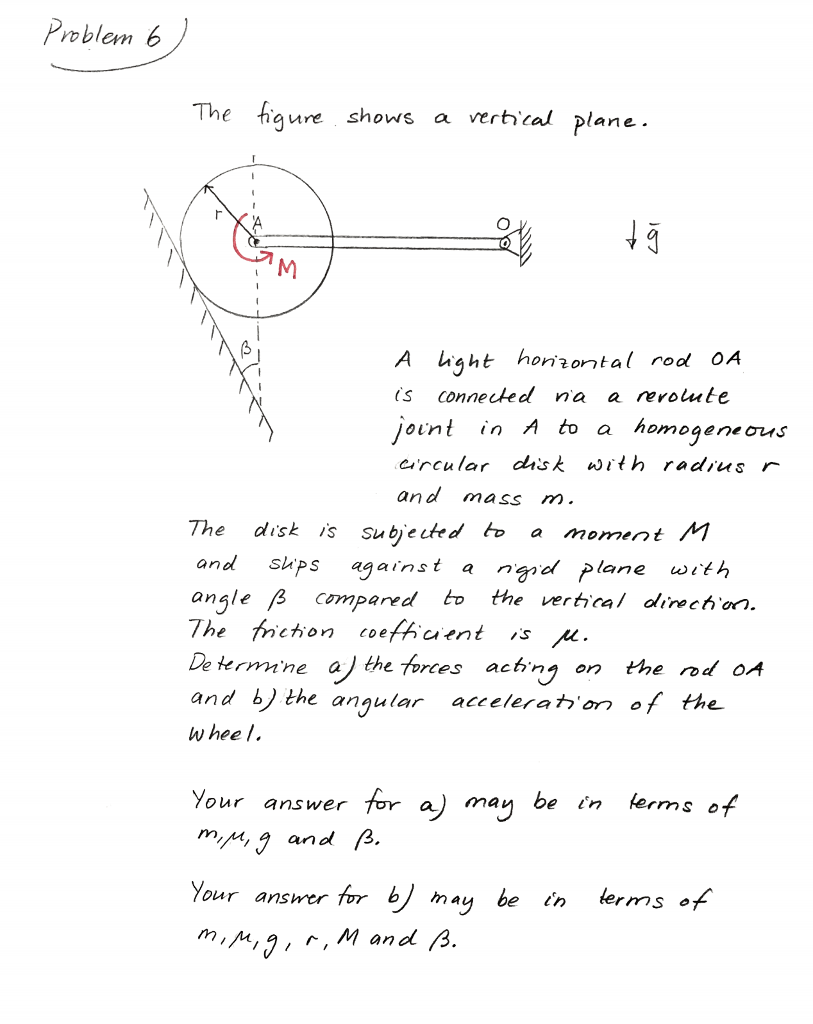 Problem 6)
The figure shows a vertical plane.
r
A
O
M
ḡ
β
A light horizontal rod OA
is connected via a revolute
joint in A to a homogeneous
circular disk with radius r
and mass m.
The disk is subjected to a moment M
and slips against a rigid plane with
angle β compared to the vertical direction.
The friction coefficient is μ.
Determine a) the forces acting on the rod OA
and b) the angular acceleration of the
wheel.
Your answer for a) may be in terms of
m, μ, g and β.
Your answer for b) may be in terms of
m, μ, g, r, M and β.